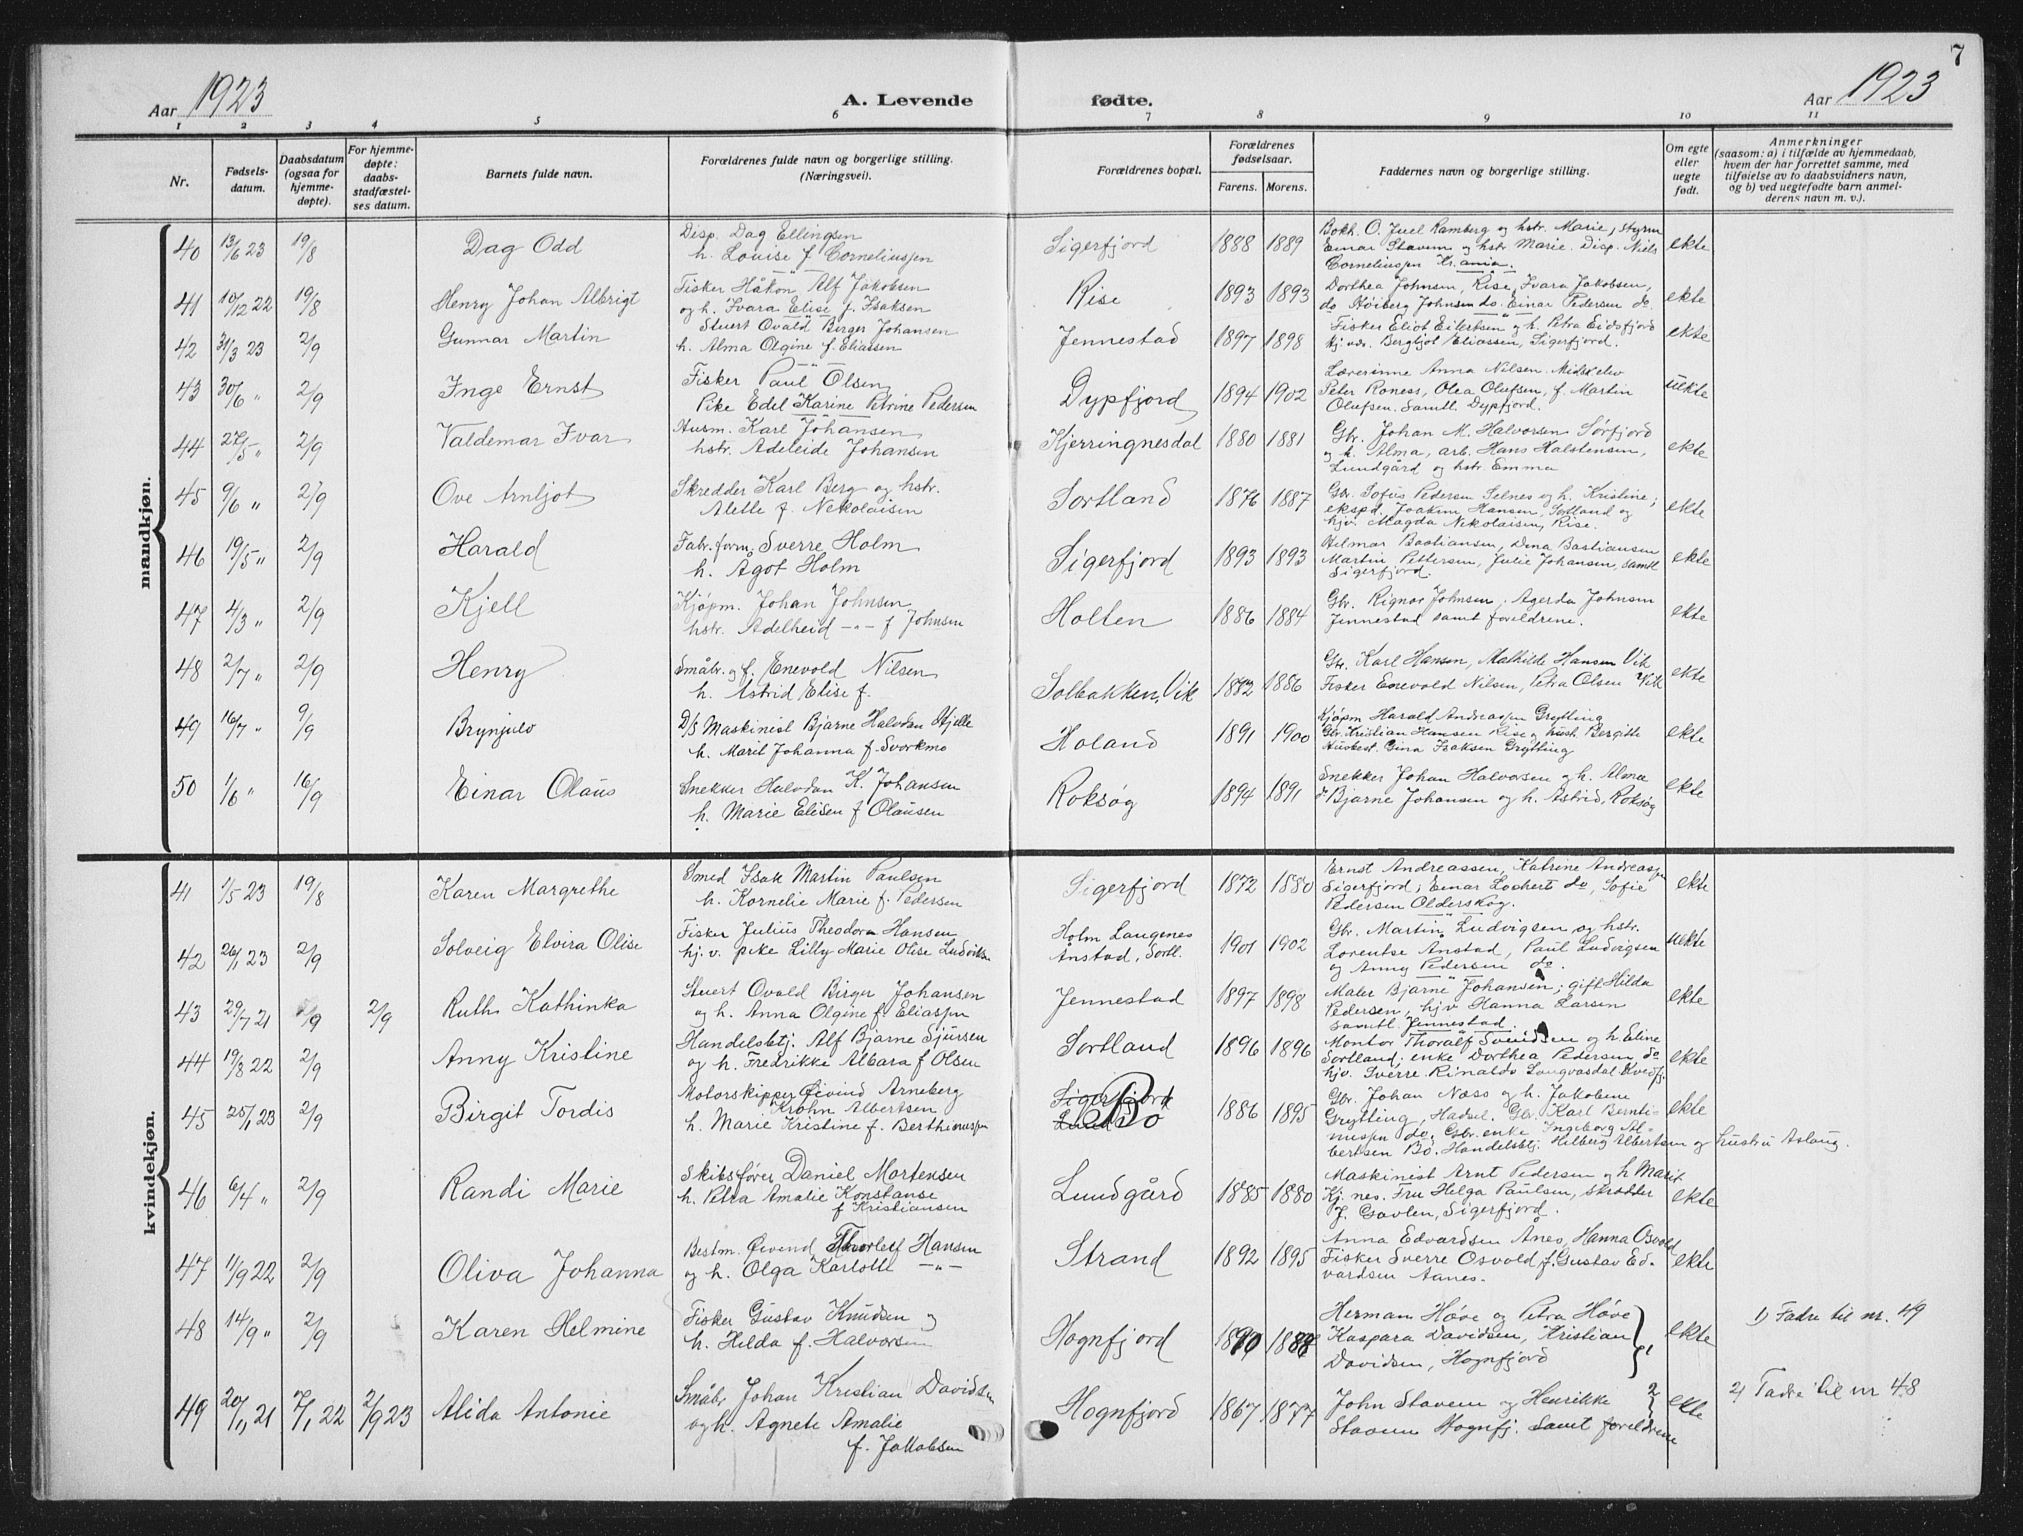 7
Aar 1923
A. Levende fødte.
Aar 1923
1 2 3 4 5 6 7 8 9 10 11
Nr.
Fødsels-
datum.
Daabsdatum
(ogsaa for
hjemme-
døpte).
For hjemme-
døpte:
daabs-
stadfæstel-
ses datum.
Barnets fulde navn.
Forældrenes fulde navn og borgerlige stilling.
(Næringsvei).
Forældrenes bopæl.
Forældrenes
fødselsaar.
Farens. Morens.
Faddernes navn og borgerlige stilling.
Om egte
eller
uegte
født.
Anmerkninger
(saasom: a) i tilfælde av hjemmedaab,
hvem der har forrettet samme, med
tilføielse av to daabsvidners navn,
og b) ved uegtefødte barn anmel-
derens navn m. v.).
mandkjøn.
40 13/6 23 19/8 Dag Odd
Disp. Dag Ellingsen
h. Louise f. Corneliussen
Sigerfjord 1888 1889
Bokh. O. Juel Ramberg og hstr. Marie, styrm
Einar Stavem og hstr. Marie. Disp. Niels
Corneliussen Kr.ania.
ekte
41 10/12 22 19/8 Henry Johan Albrigt
Fisker Håkon Alf Jakobsen
og h. Ivara Elise f. Isaksen
Rise 1893 1893
Dorthea Johnsen, Rise, Ivara Jakobsen,
do Høiberg Johnsen do. Einar Pedersen do
ekte
42 31/3 23 2/9 Gunnar Martin
Stuert Ovald Birger Johansen
h. Alma Olgine f. Eliassen
Jennestad 1897 1898
Fisker Eliot Eilertsen og h. Petra Eidsfjord
hj. vær. Bergljot Eliassen, Sigerfjord.
ekte
43 30/6 " 2/9 Inge Ernst
Fisker Paul Olsen
Pike Edel Karine Petrine Pedersen
Dypfjord 1894 1902
Lærerinne Anna Nilsen. Midsk elev
Peter Roness, Olea Olufsen, f. Martin
Olufsen. Samtl. Dypfjord.
uekte
44 27/5 " 2/9 Valdemar Ivar
Husm. Karl Johansen
hstr. Adeleide Johansen
Kjerringnesdal 1880 1881
Gbr. Johan M. Halvorsen Sørfjord
og h. Alma, arb. Hans Halstensen,
Lundgård og hstr. Emma
ekte
45 9/6 " 2/9 Ove Arnljot
Skredder Karl Berg og hstr.
Alette f. Nekolaisen
Sortland 1876 1887
Gbr. Sofus Pedersen Selnes og h. Kristine;
ekspd. Joakim Hansen, Sortland og
hjv. Magda Nikolaisen, Rise.
ekte
46 19/5 " 2/9 Harald
Fabr. form. Sverre Holm
h. Ågot Holm
Sigerfjord 1893 1893
Hilmar Bastiansen, Dina Bastiansen
Martin Pettersen, Julie Johansen, samtl
Sigerfjord.
ekte
47 4/3 " 2/9 Kjell
Kjøpm. Johan Johnsen
hstr. Adelheid -"- f Johnsen
Holten 1886 1884
Gbr. Rignor Johnsen, Agerda Johnsen
Jennestad samt foreldrene.
ekte
48 2/7 " 2/9 Henry
Småbr. og f. Enevold Nilsen
h. Astrid Elise f.
Solbakken, Vik 1882 1886
Gbr. Karl Hansen, Mathilde Hansen Vik
Fisker Enevold Nilsen, Petra Olsen Vik
ekte
49 16/7 " 9/9 Brynjulv
D/S Maskinist Bjarne Halvdan Hjelle
h. Marit Johanna f. Svorkmo
Holand 1891 1900
Kjøpm Harald Andreassen Grytting
Gbr. Kristian Hansen Rise og hust. Bergitte
Huskest. Gina Isaksen Grytting
ekte
50 1/6 " 16/9 Einar Olaus
Snekker Halvdan K. Johansen
h. Marie Elisen f Olausen
Roksøg 1894 1891
Snekker Johan Halvorsen og h. Alma
do Bjarne Johansen og h. Astrid, Roksøg
ekte
kvindekjøn.
41 1/5 23 19/8 Karen Margrethe
Smed Isak Martin Paulsen
h. Kornelie Marie f. Pedersen
Sigerfjord 1872 1880
Ernst Andreassen, Katrine Andreassen
Sigerfjord; Einar Lochert do, Sofie
Pedersen Olderskog.
ekte
42 26/1 23 2/9 Solveig Elvira Olise
Fisker Julius Theodora Hansen
hj. v. pike Lilly Marie Olise Ludviksn
Holm Langenes
Anstad, Sortl. 1901 1902
Gbr. Martin Ludvigsen og hstr.
Lorentse Anstad, Paul Ludvigsen
og Anny Pedersen do.
uekte
43 29/7 21 2/9 2/9 Ruth Kathinka
Stuert Ovald Birger Johansen
og h. Anna Olgine f. Eliassen
Jennestad 1897 1898
Maler Bjarne Johansen; gift Hilda
Pedersen, hjv Hanna Larsen
samtl. Jennestad.
ekte
44 19/8 22 2/9 Anny Kristine
Handelsbtj. Alf Bjarne Sjursen
og h. Fredrikke Albara f Olsen
Sortland 1896 1896
Montør Thoralf Svendsen og h. Eline
Sortland: enke Dorthea Pedersen do
hjv. Sverre Rinaldo Langvasdal Kvedfj.
ekte
45 25/1 23 2/9 Birgit Tordis
Motorskipper Øivind Arneberg
Krohn Albertsen
h. Marie Kristine f. Berthiniussen
Sigerfjord
Bø 1886 1895
Gbr. Johan Næss og h. Jakobine
Grytting, Hadsel. Gbr. Karl Bernti-
nussen do. Gbr. enke Ingeborg Al-
bertsen Bø. Handelsbtj. Hilberg Albertsen og hustru Aslaug.
ekte
46 6/4 " 2/9 Randi Marie
Skibsfører Daniel Mortensen
h. Petra Amalie Konstanse
f Kristiansen
Lundgård 1885 1880
Maskinist Arnt Pedersen og h Marit
Kj. nes. Fru Helga Paulsen, skredder
J. Gavlen, Sigerfjord.
ekte
47 11/9 22 2/9 Oliva Johanna
Bestm. Øivind Thorleif Hansen
og h. Olga Karlotte -"-
Strand 1892 1895
Anna Edvardsen Ånes, Hanna Osvold
Fisker Sverre Osvold f. Gustav Ed-
vardsen Aanes.
ekte
48 14/9 " 2/9 Karen Helmine
Fisker Gustav Knudsen og
h. Hilda f. Halvorsen
Hognfjord 1890 1888
Herman Høve og Petra Høve
Kaspara Davidsen, Kristian
Davidsen, Hognfjord
ekte
1) Fadre til nr. 49
49 20/11 21 7/1 22 2/9 23 Alida Antonie
Småbr. Johan Kristian Davidsen
og h. Agnete Amalie
f. Jakobsen
Hognfjord 1867 1877
John Stavem og Henrikke
Stavem Hognfj. Samt foreldrene
ekte
2) Fadre til nr 48